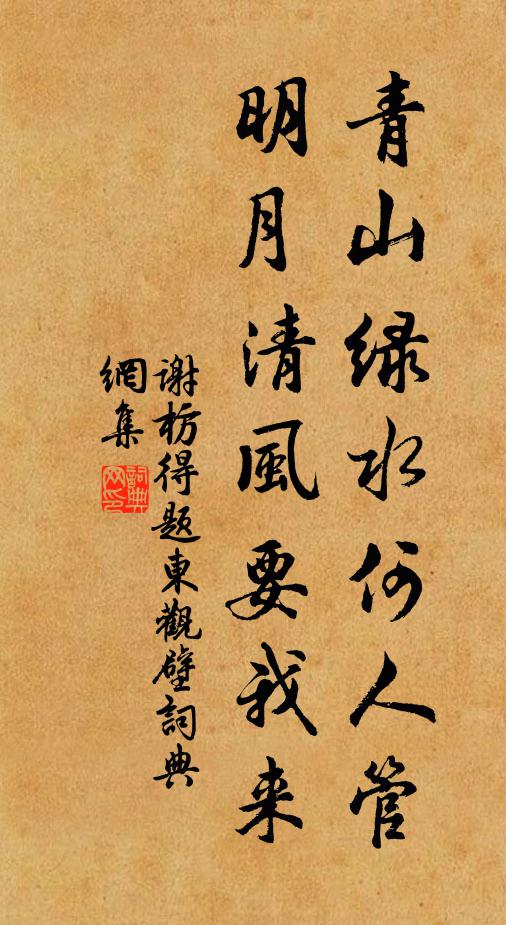 青山緑水何人管
明月清風要我来
谢枋得題東觀壁詞典
網集
詞典
网印